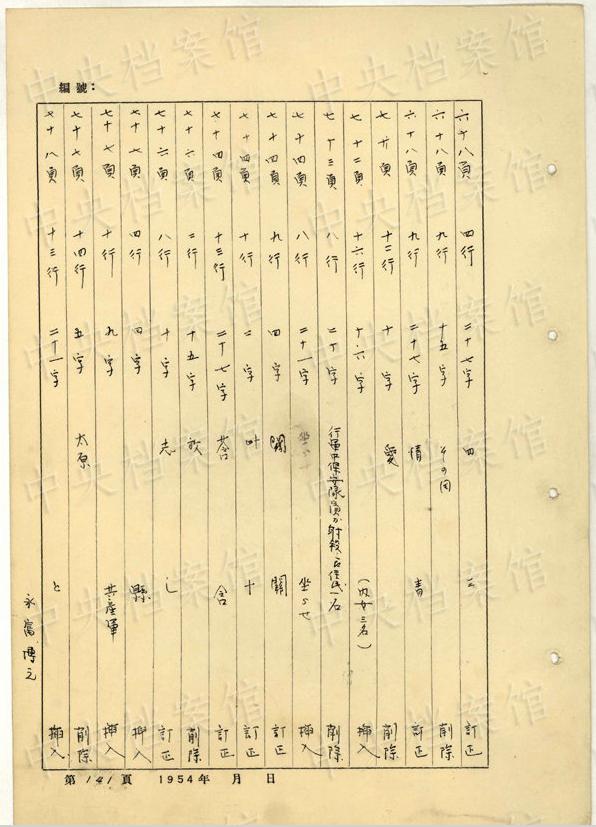 編號：
六十八頁 四行 二十七字 四 三 訂正
六十八頁 九行 十五字 その 削除
六十八頁 九行 二十七字 情 青 訂正
七十頁 十二行 十字 愛 削除
七十二頁 十六行 十六字 （内女三名） 挿入
七十三頁 八行 二十字 行軍中保安隊員が射殺 一名 削除
七十四頁 八行 二十一字 坐らせ 挿入
七十四頁 九行 四字 關 訂正
七十四頁 十行 二字 叶 十 訂正
七十四頁 十三行 二十七字 荅 含 訂正
七十六頁 二行 十五字 削除
七十六頁 八行 十字 志 し 訂正
七十七頁 四行 四字 縣 挿入
七十七頁 十行 九字 共產軍 挿入
七十七頁 十四行 五字 太原 削除
七十八頁 十三行 二十一字 と 挿入
永富博之
第 141 頁 1954年 月 日
中央档案馆